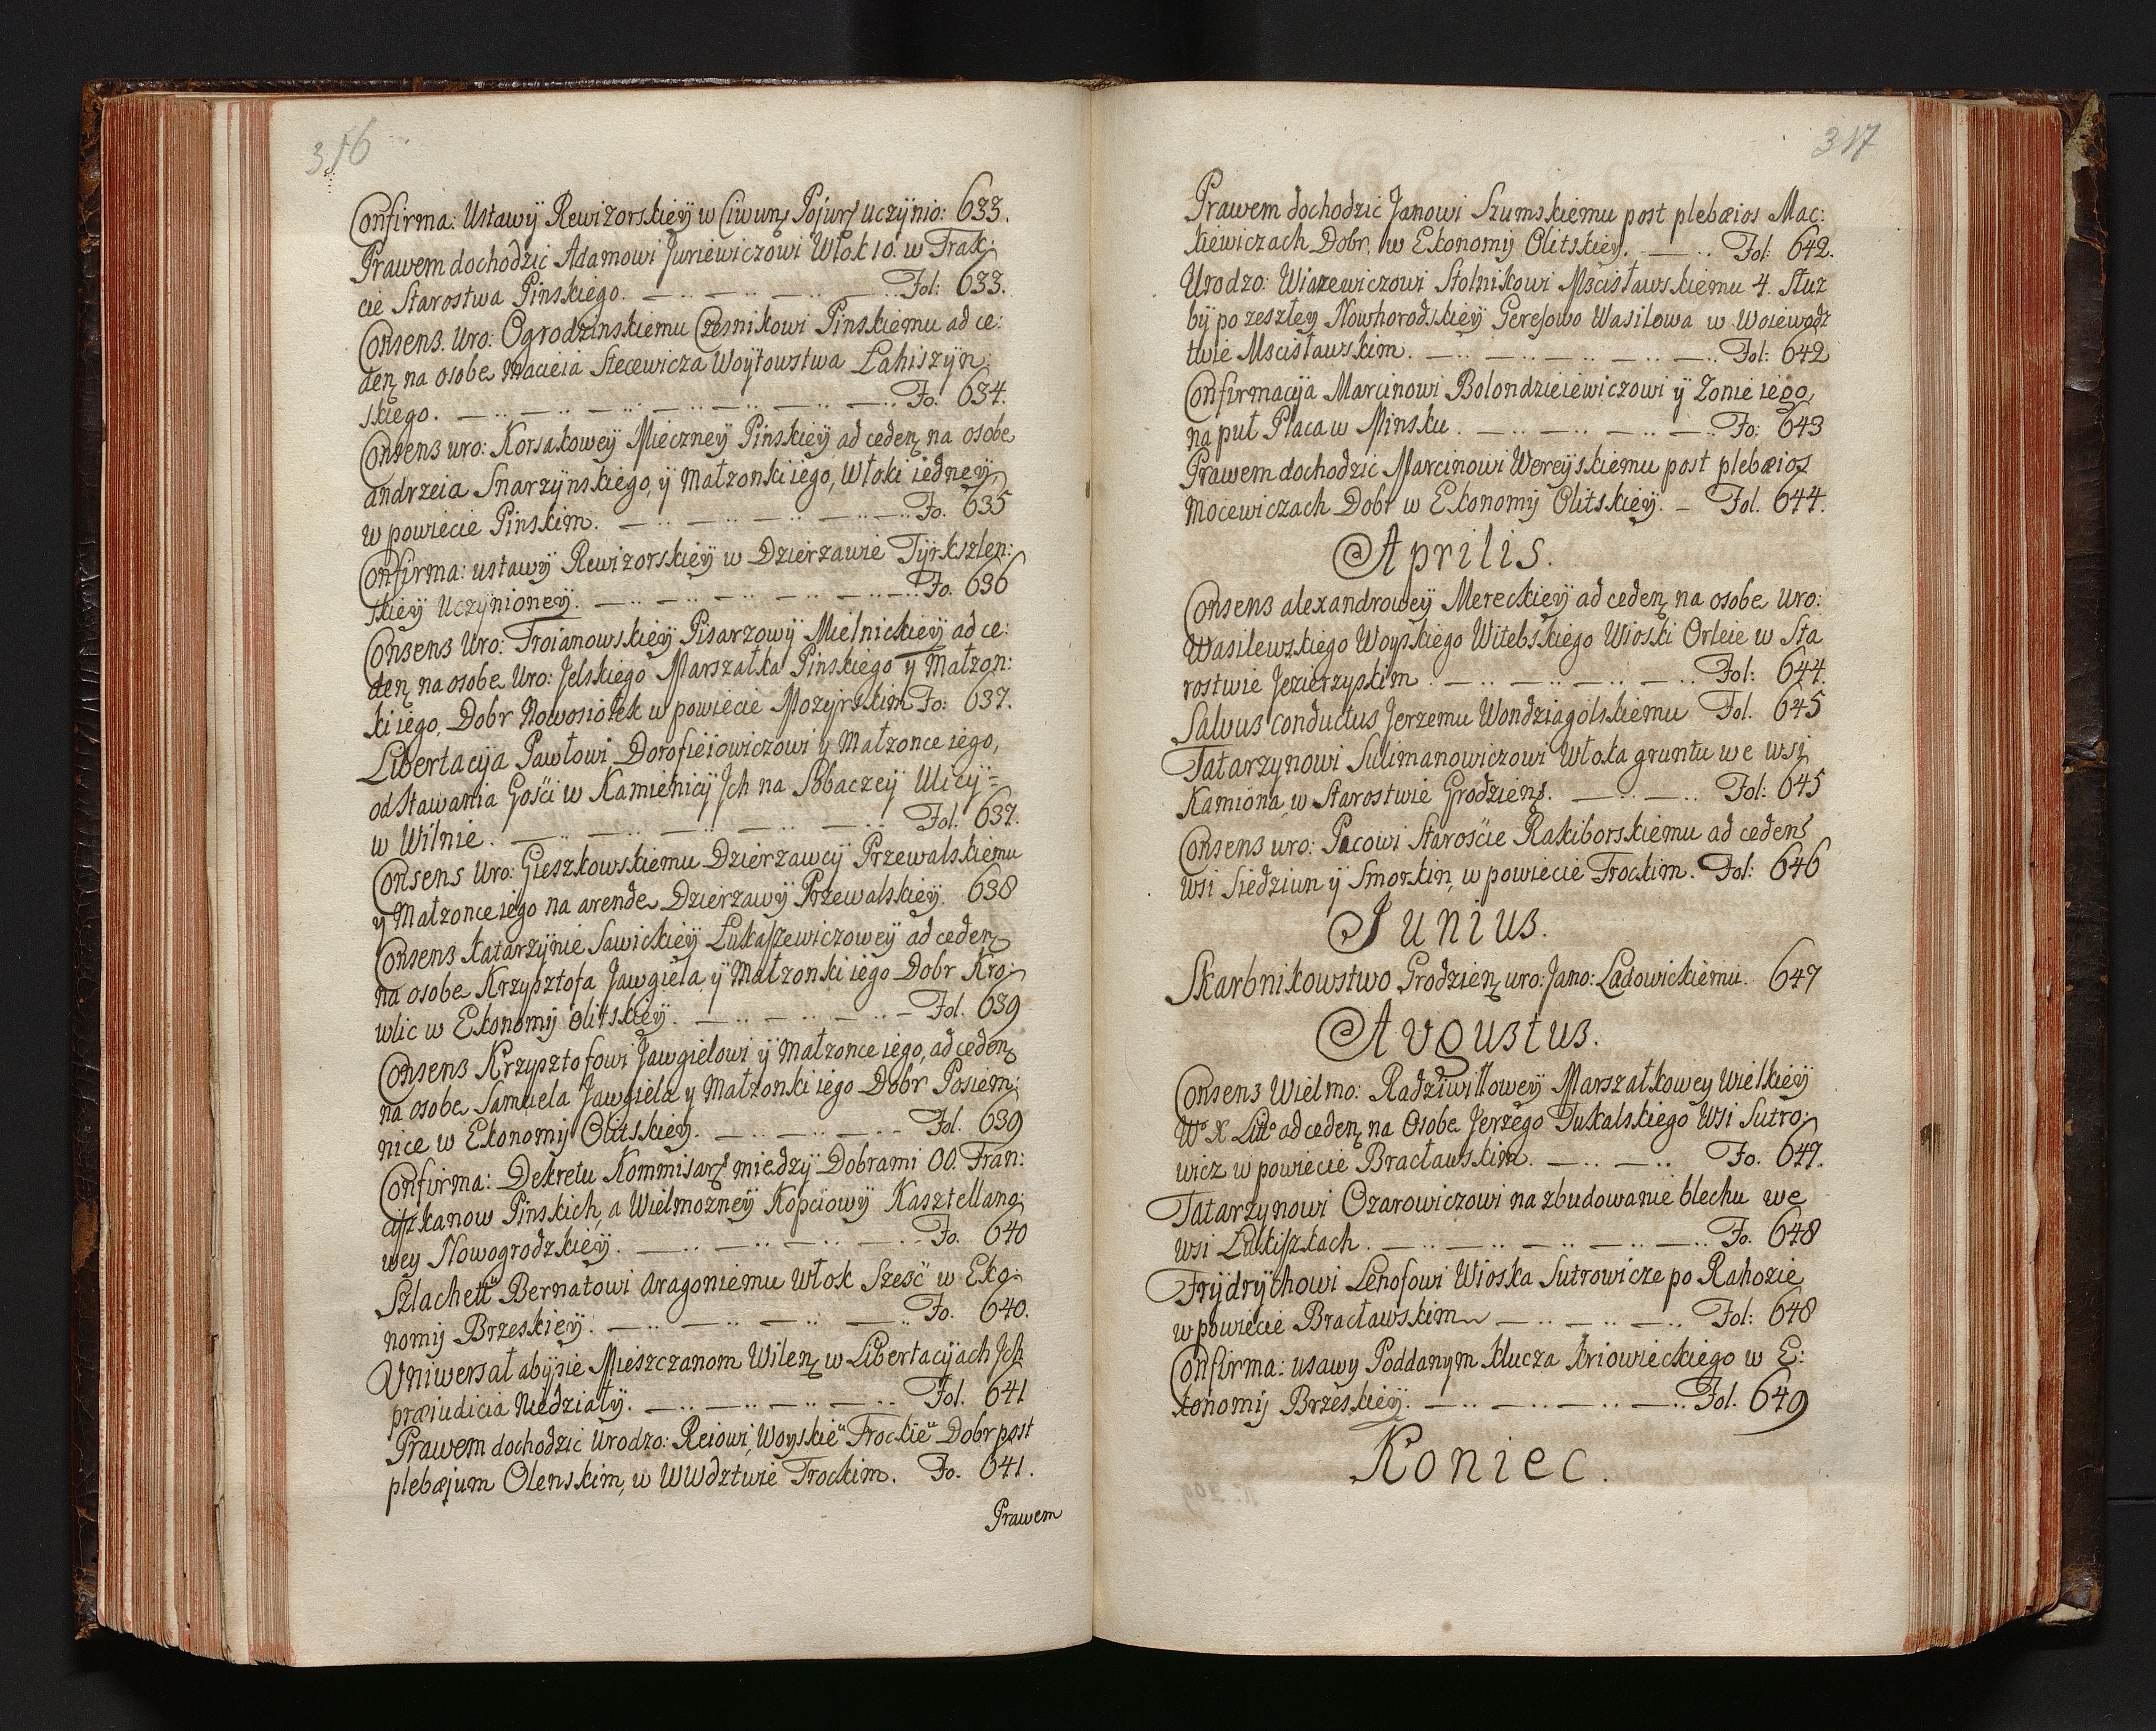 316
Confirma: Ustawÿ Rewizorskieÿ w Ciwunʒ Pojurʒ uczÿnio: 633.
Prawem dochodzić Adamowi Juriewiczowi Włok 10. w Trak:
cie Starostwa Pinskiego. Fol: 633.
Consens. Uro: Ogrodzinskiemu Czesnikowi Pinskiemu ad ce:
denʒ na osobe Macieia Stecewicza Woÿtowstwa Łahiszÿn:
skiego. Fo. 634.
Consens uro: Korsakoweÿ Mieczneÿ Pinskieÿ ad cedenʒ na osobe
andrzeia Snarzÿnskiego, ÿ Małzonki iego, Włoki iedneÿ,
w powiecie Pinskim. Fo. 635
Confirma: ustawÿ Rewizorskieÿ w Dzierzawie Tÿrkszlen:
skieÿ Uczÿnioneÿ. Fo. 636
Consens Uro: Troianowskieÿ Pisarzowÿ Mielnickieÿ ad ce:
denʒ na osobe Uro: Jelskiego Marszałka Pinskiego ÿ Małzon:
ki iego, Dobr Nowosiołek w powiecie Mozyrskim Fo: 637.
Libertacÿa Pawłowi Dorofieiowiczowi y Małzonce iego,
od stawania Gosci w Kamienicÿ Jch na Sobaczeÿ Ulicÿ=
w Wilnie. Fol. 637.
Consens Uro: Gieszkowskiemu Dzierzawcÿ Przewalskiemu
y Małzonce iego na arende Dzierzawÿ Przewalskieÿ. 638
Consens Katarzÿnie Sawickieÿ Łukaszewiczoweÿ ad cedenʒ
na osobe Krzysztofa Jawgiela ÿ Małzonki iego Dobr Kro:
wlic w Ekonomÿ Olitskieÿ. Fol. 639
Consens Krzysztofowi Jawgielowi ÿ Małzonce iego, ad cedenʒ
na osobe Samuela Jawgiela y Małzonki iego Dobr Posiem:
nice w Ekonomÿ Olitskieÿ. Fol. 639
Confirma: Dekretu Kommisarʒ miedzÿ Dobrami OO. Fran:
ciszkanow Pinskich, a Wielmozneÿ Kopciowÿ Kasztellano:
wey Nowogrodzkieÿ. Fo. 640
Szlachetu Bernatowi Aragoniemu Włok Szesć w Eko:
nomij Brzeskieÿ. Fo. 640.
Uniwersał abÿsie Mieszczanom Wilenʒ w Libertacÿach Jch
præiudicia Niedziałÿ. Fol. 641
Prawem dochodzić Urodzo: Reiowi, Woyskieu Trockieu Dobr post
plebæjum Olenskim, w WWdztwie Trockim. Fo. 641.
Prawem
317
Prawem dochodzić Janowi Szumskiemu post plebæios Mac:
kiewiczach Dobr, w Ekonomÿ Olitskieÿ. Fol: 642.
Urodzo: Wiazewiczowi Stolnikowi Mscisławskiemu 4. Słuz
bÿ po zeszłeÿ Nowhorodskieÿ Geresowo Wasilowa w Woiewodz
twie Mscisławskim. Fol: 642
Confirmacÿa Marcinowi Bolondzieiewiczowi ÿ Zonie iego,
na puł Placa w Minsku. Fo: 643
Prawem dochodzić Marcinowi Wereÿskiemu post plebæios
Mocewiczach Dobr w Ekonomÿ Olitskieÿ. Fol. 644.
Aprilis.
Consens alexandroweÿ Mereckieÿ ad cedenʒ na osobe Uro:
Wasilewskiego Woyskiego Witebskiego Wioski Orleie w Sta
rostwie Jezierzyskim. Fol: 644.
Salvus conductus Jerzemu Wondziagolskiemu Fol. 645
Tatarzynowi Sulimanowiczowi Włoka gruntu we wsi
Kamiona w Starostwie Grodzienʒ. Fol: 645
Consens uro: Pacowi Starosćie Rakiborskiemu ad cedenʒ
wsi Siedziun ÿ Smorkin, w powiecie Trockim. Fol: 646
Junius.
Skarbnikowstwo Grodzienʒ uro: Jano: Ładowickiemu. 647
Avgustus.
Consens Wielmo: Radziwiłłoweÿ Marszałkowey Wielkieÿ
Wo X Litto ad cedenʒ na Osobe Jerzego Tukalskiego Wsi Sutro:
wicz w powiecie Bracławskim. Fo. 647.
Tatarzynowi Ozarowiczowi na zbudowanie blechu we
wsi Łukiszkach. Fo. 648
Frÿdrÿchowi Lenosowi Wioska Sutrowicze po Rahozie
w powiecie Bracławskim Fol: 648
Confirma: usawy Poddanym Klucza Kriowieckiego w E:
konomij Brzeskieÿ. Fol. 649
Koniec.